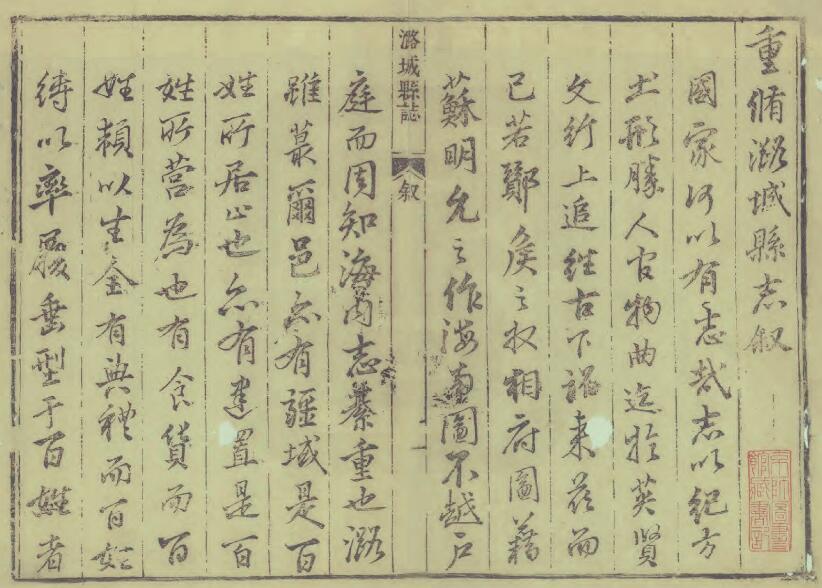 重脩潞城縣志叙
國家何以有志哉志以紀方
土形勝人官物曲迄於英賢
文行上追往古下詔來茲而
已若酇侯之収相府圖籍
蘇明允之作海圖不越戶
潞城縣誌
叙
庭而周知海內志綦重也潞
雖蕞爾邑亦有疆域是百
姓所居止也亦有建置是百
姓所營為也有食貨而百
姓頼以生全有典禮而百姓
以率履垂型于百姓者